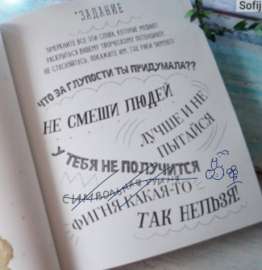 Sofij
ЗАДАНИЕ
ЗАЧЕРКНИТЕ ВСЕ ЭТИ СЛОВА, КОТОРЫЕ МЕШАЮТ
РАСКРЫТЬСЯ ВАШЕМУ ТВОРЧЕСКОМУ ПОТЕНЦИАЛУ.
НЕ СТЕСНЯЙТЕСЬ, ПОКАЖИТЕ ИМ, ГДЕ РАКИ ЗИМУЮТ!
ЧТО ЗА ГЛУПОСТИ ТЫ ПРИДУМАЛА??
НЕ СМЕШИ ЛЮДЕЙ
ЛУЧШЕ И НЕ
ПЫТАЙСЯ
У ТЕБЯ НЕ ПОЛУЧИТСЯ
ФИГНЯ КАКАЯ-ТО
ТАК НЕЛЬЗЯ!